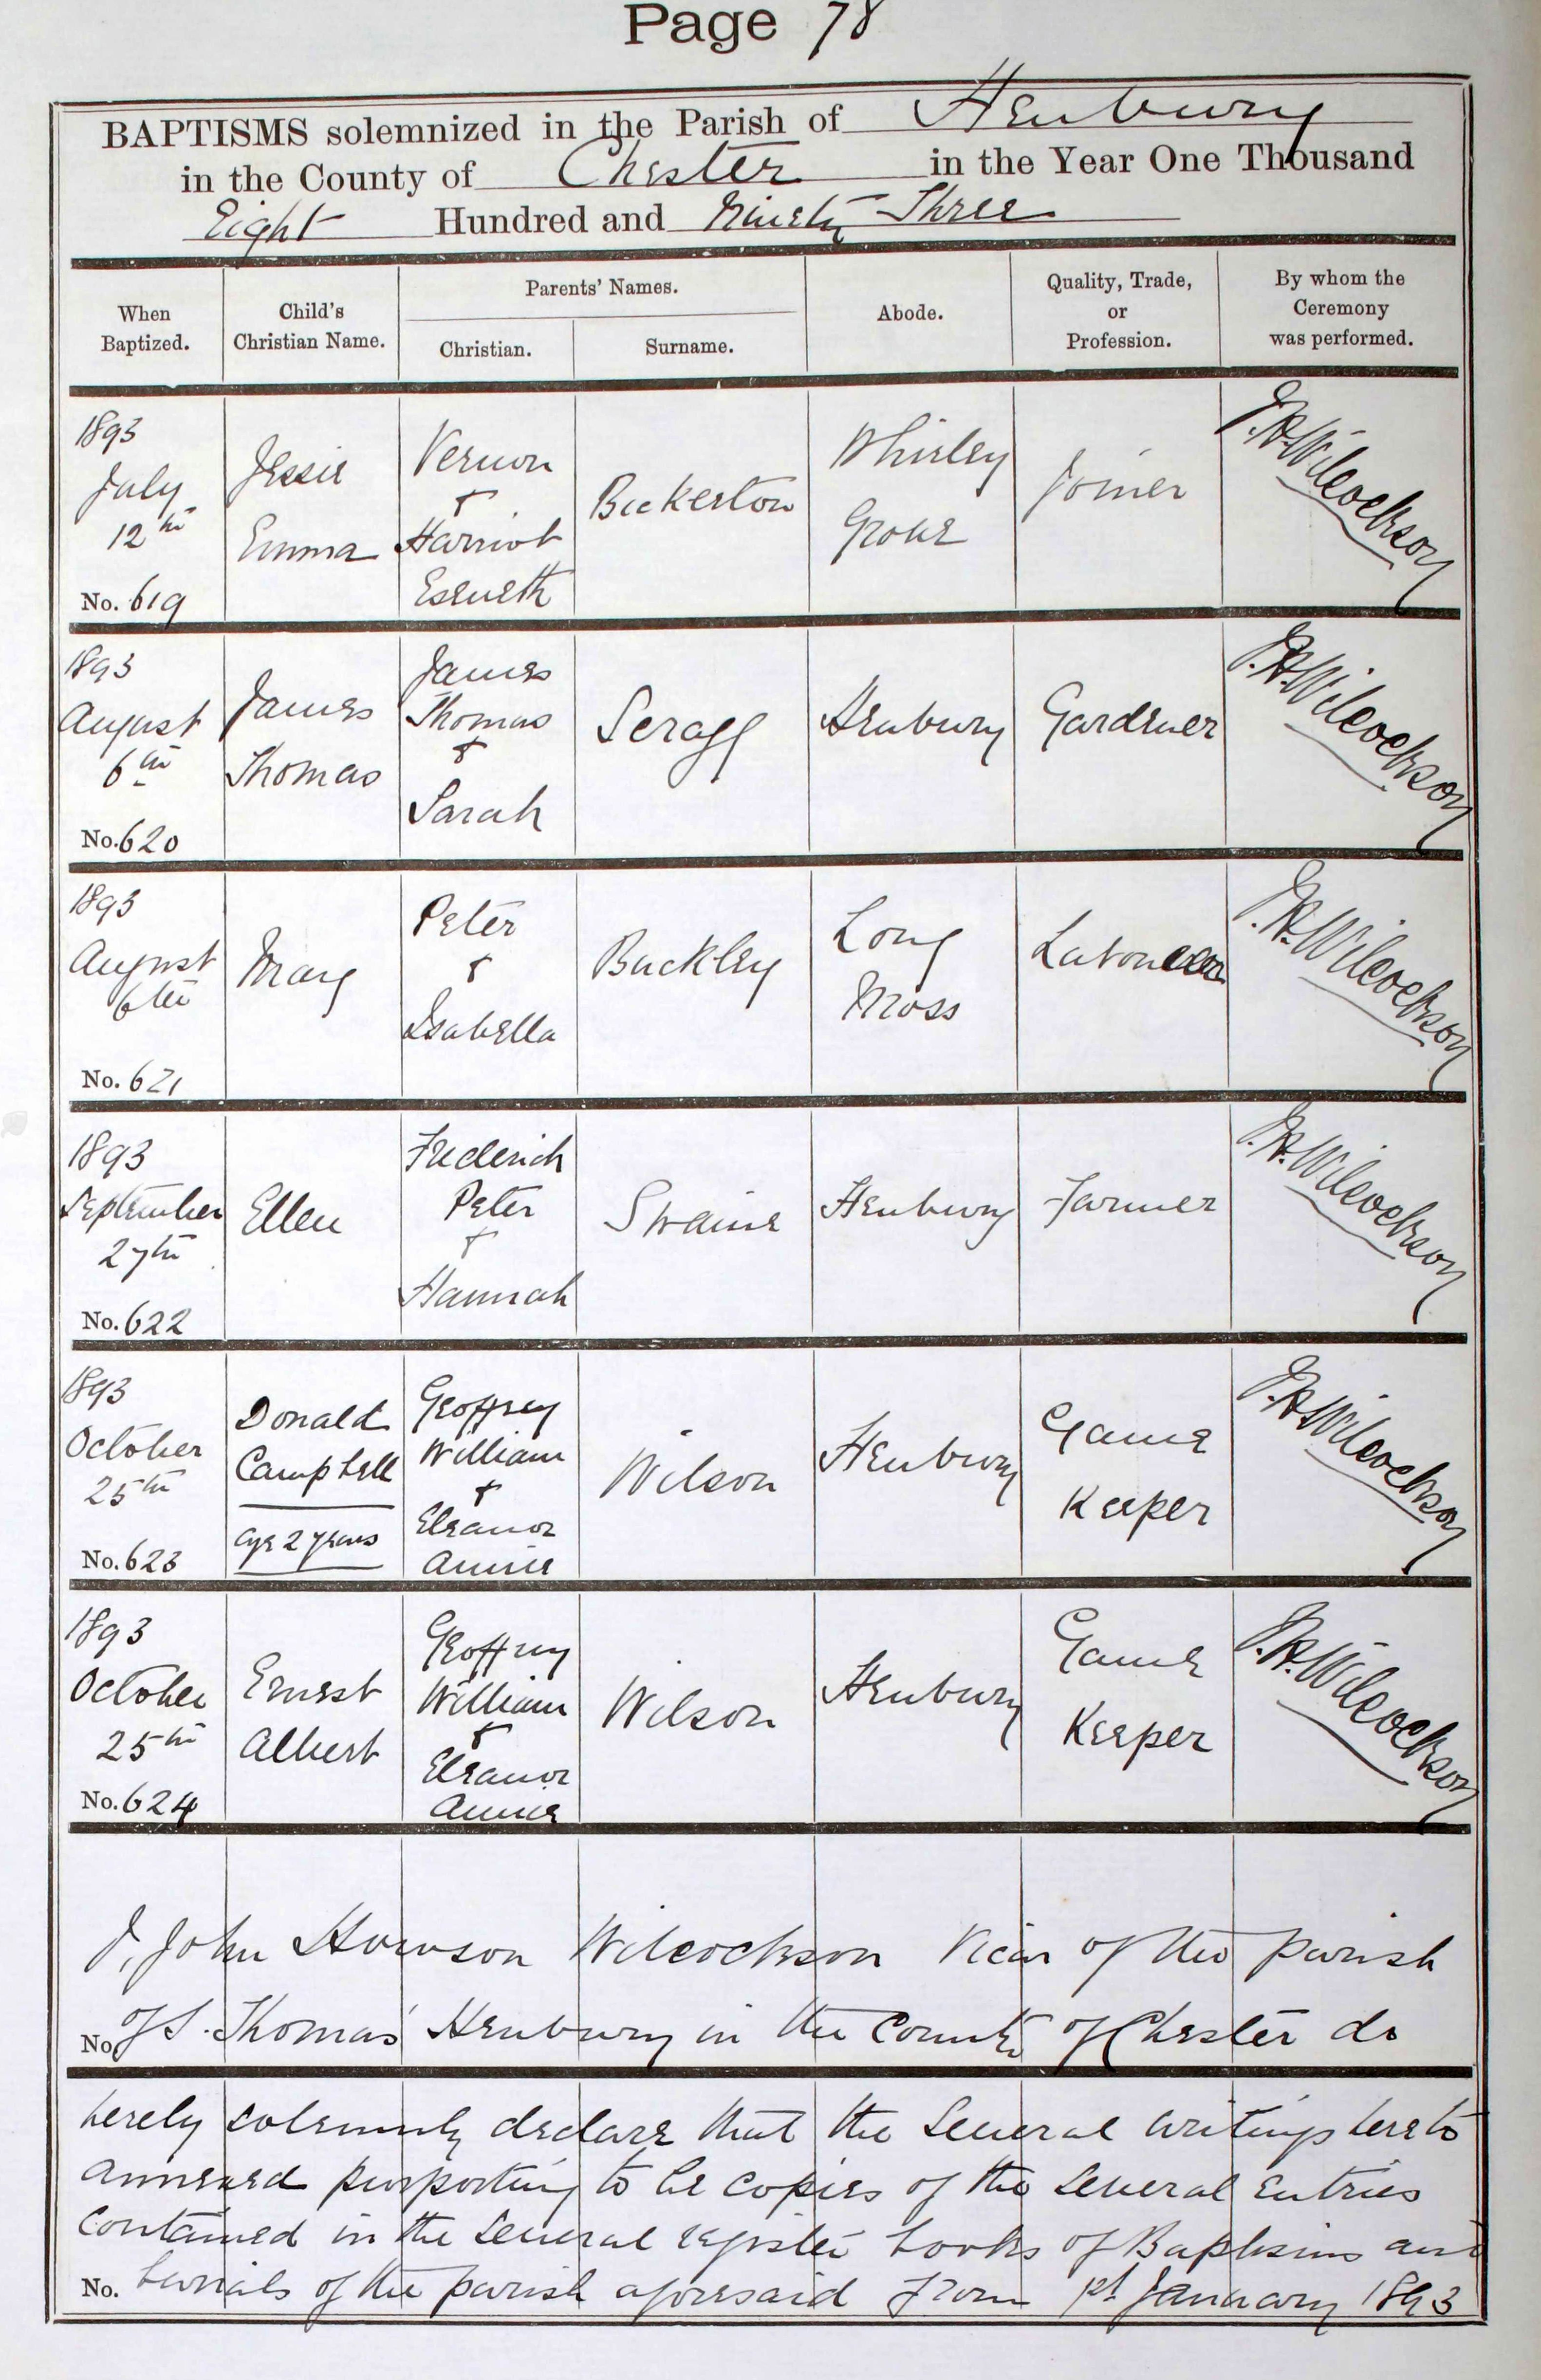 Page 78
BAPTISMS solemnized in the Parish of Henbury
in the County of Chester in the Year One Thousand
Eight Hundred and Ninety Three
When Baptized.
Child's Christian Name.
Parents' Names.
Christian.
Surname.
Abode.
Quality, Trade, or Profession.
By whom the Ceremony was performed.
1893
July
12th
No. 619
Jessie
Emma
Vernon
+
Harriot
Eseneth
Bickerton
Whirley
Grove
Joiner
J.H. Wilcockson
1893
August
6th
No. 620
James
Thomas
James
Thomas
+
Sarah
Scragg
Henbury
Gardener
J.H. Wilcockson
1893
August
6th
No. 621
Mary
Peter
+
Isabella
Buckley
Long
Moss
Labourer
J.H. Wilcockson
1893
September
27th
No. 622
Ellen
Frederick
Peter
+
Hannah
Swaine
Henbury
Farmer
J.H. Wilcockson
1893
October
25th
No. 623
Donald
Campbell
age 2 years
Geoffrey
William
+
Eleanor
Annie
Wilson
Henbury
Game
Keeper
J.H. Wilcockson
1893
October
25th
No. 624
Ernest
Albert
Geoffrey
William
+
Eleanor
Annie
Wilson
Henbury
Game
Keeper
J.H. Wilcockson
I, John Howson Wilcockson Vicar of the parish
No. of S. Thomas' Henbury in the County of Chester do
herely solemnly declare that the several writings hereto
annexed purporting to be copies of the several entries
contained in the several register books of Baptisms and
No. burials of the parish aforesaid from 1st January 1893